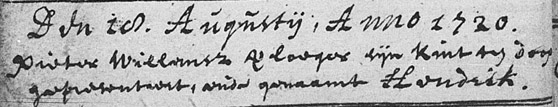 Den 18. Augustij, Anno 1720.
Pieter Willemsz Ploeger sijn Kint ten doop
gepresenteert, ende genaamt Hendrik.